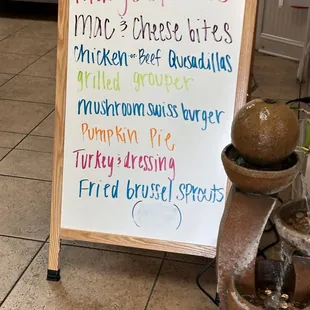 Mac & Cheese bites
Chicken or Beef Quesadillas
grilled grouper
mushroom swiss burger
Pumpkin Pie
Turkey & dressing
Fried brussel sprouts